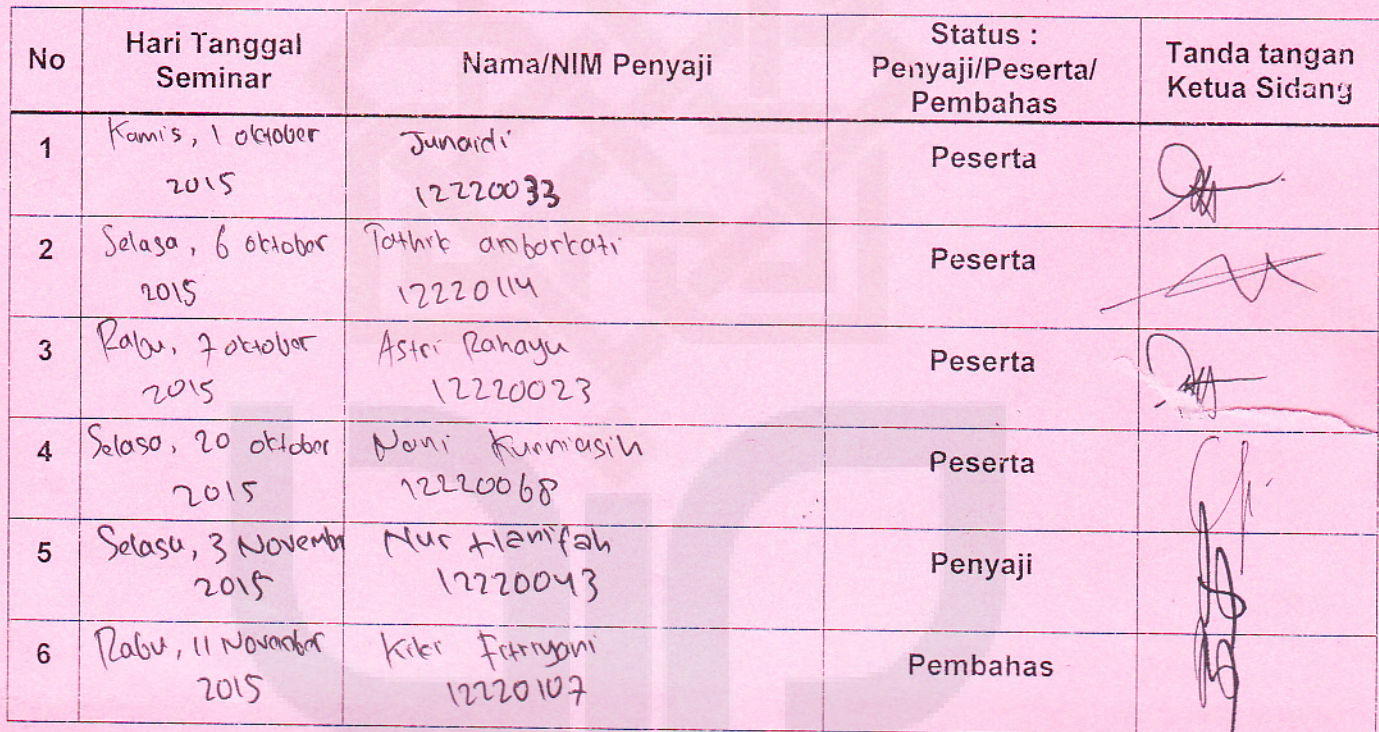 No
Hari Tanggal
Seminar
Nama/NIM Penyaji
Status :
Penyaji/Peserta/
Pembahas
Tanda tangan
Ketua Sidang
1
Kamis, 1 oktober
2015
Junaidi
12220033
Peserta
2
Selasa, 6 oktober
2015
Tathik ambarkati
12220114
Peserta
3
Rabu, 7 oktober
2015
Astri Rahayu
12220023
Peserta
4
Selasa, 20 oktober
2015
Noni Kurniasih
12220068
Peserta
5
Selasa, 3 Novembr
2015
Nur Hanifah
12220043
Penyaji
6
Rabu, 11 November
2015
Kiki Fitriyani
12220107
Pembahas